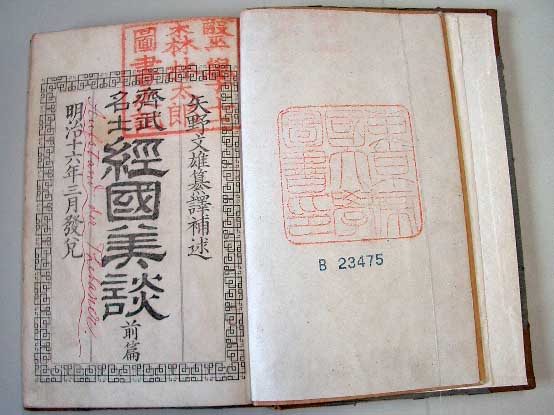 醫學士
森林太郎
圖書
矢野文雄纂譯補述
齊武
名士
經國美談
前篇
明治十六年三月發兌
東京帝
國大學
圖書印
B 23475